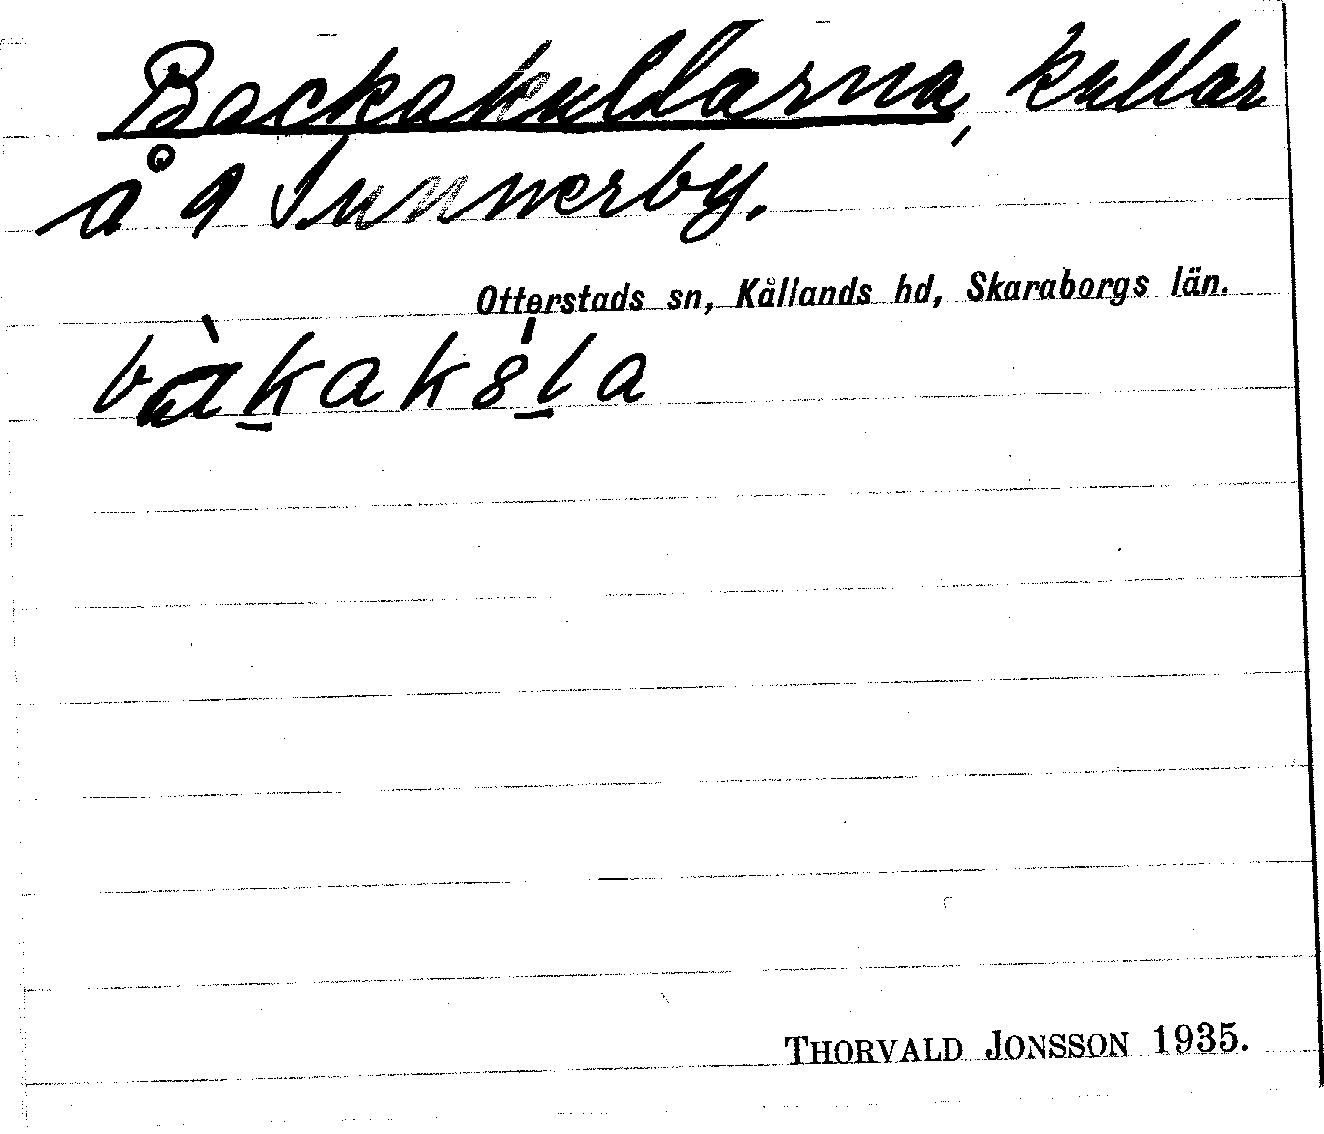 Backakullarna, kullar
å 9 Sunnerby.
Otterstads sn, Kållands hd, Skaraborgs län.
THORVALD JONSSON 1935.